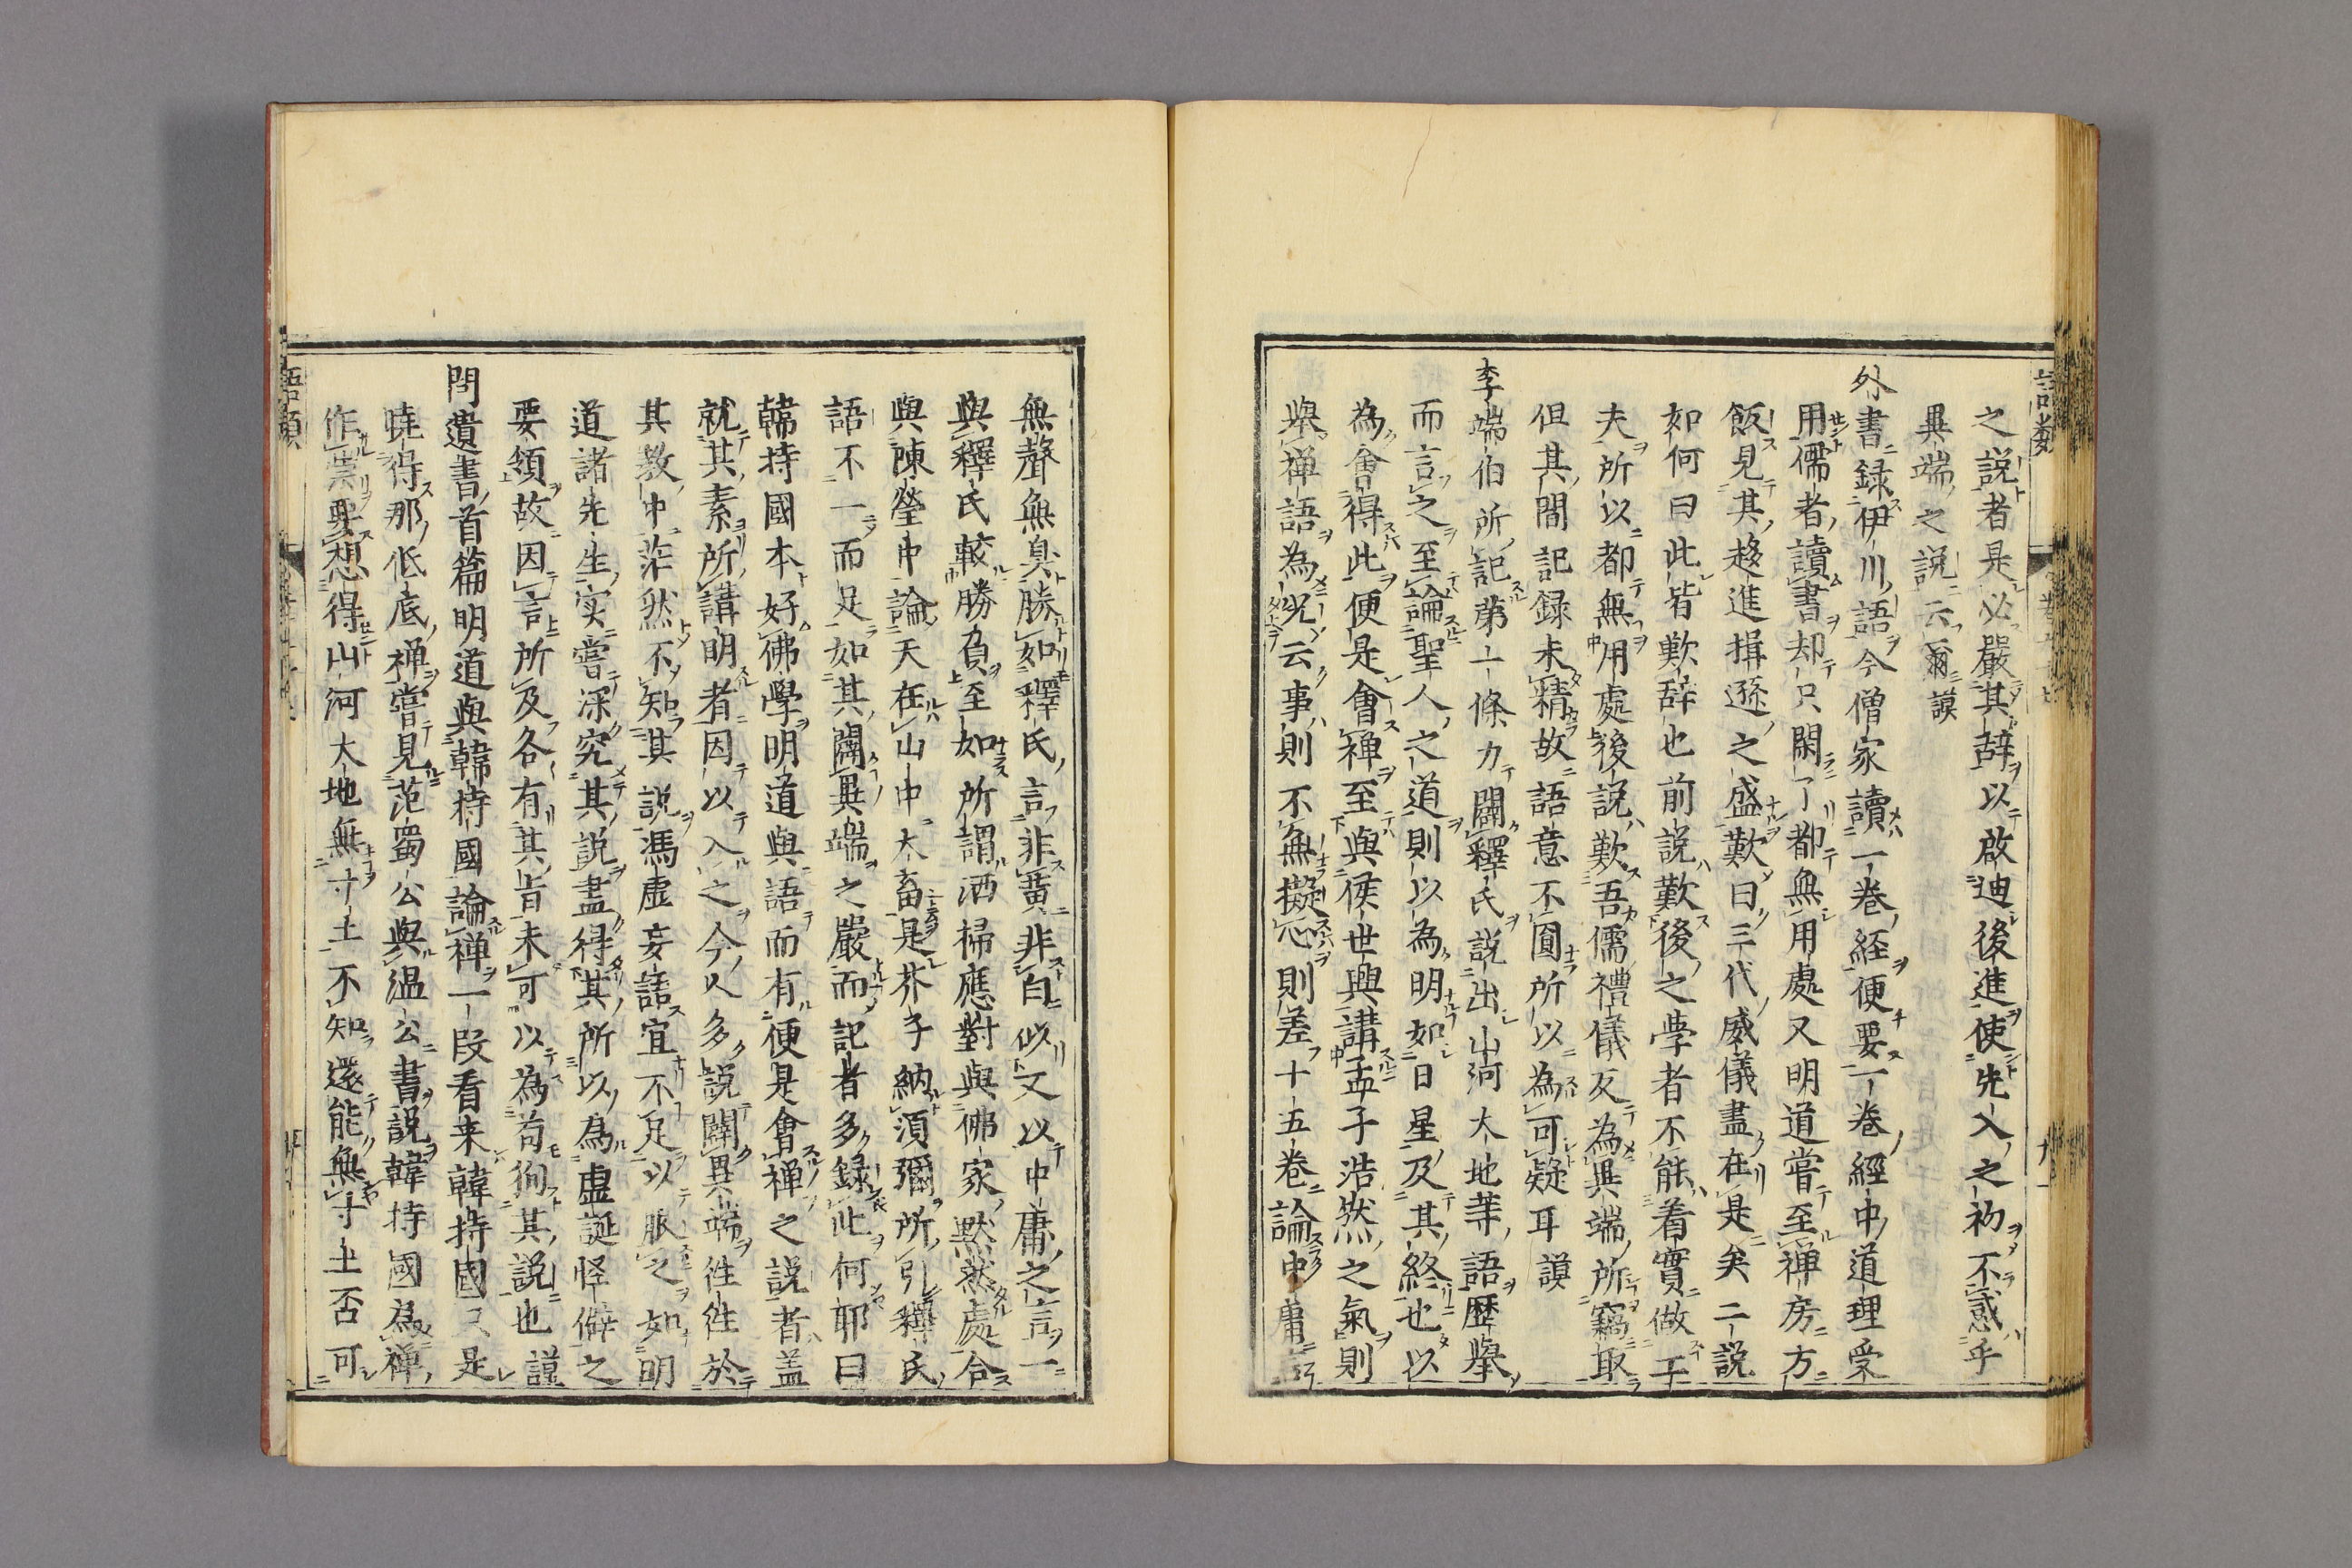 之說者是必嚴其辞以啟迪後進使先入之初不惑乎
異端之説云爾 謨
外書録伊川語今僧家讀一卷経便要一卷經中道理受
用儒者讀書却只閑了都無用處又明道嘗至禅房方
飯見其趍進揖遜之盛歎曰三代威儀盡在是矣二説
如何曰此皆歎辞也前説歎後之学者不能着實做工
夫所以都無用處後説歎吾儒禮儀反為異端所竊取
但其間記録未精故語意不圓所以為可疑耳 謨
李端伯所記第一條力闢釋氏説出山河大地等語歷舉
而言之至論聖人之道則以為明如日星及其終也以
為會得此便是會禅至與侯世興講孟子浩然之氣則
舉禅語為況云事則不無擬心則差十五巻論中庸言
無聲無臭勝如釋氏言非黄非白似又以中庸之言一
與釋氏較勝負至如所謂洒掃應對與佛家黙然處合
與陳瑩中論天在山中大畜是芥子納須彌所引釋氏
語不一而足如其闢異端之嚴而記者多録此何耶曰
韓持國本好佛學明道與語而有便是會禅之説者盖
就其素所講明者因以入之今人多説闢異端徃徃於
其教中茫然不知其説馮虚妄語宜不足以服之如明
道諸先生实嘗深究其説盡得其所以為虚誕怪僻之
要領故因言所及各有其旨未可以為苟徇其説也 謨
問遺書首篇明道與韓持國論禅一段看来韓持國只是
曉得那低底禅嘗見范蜀公與温公書説韓持國為禅
作祟要想得山河大地無寸土不知還能無寸土否可